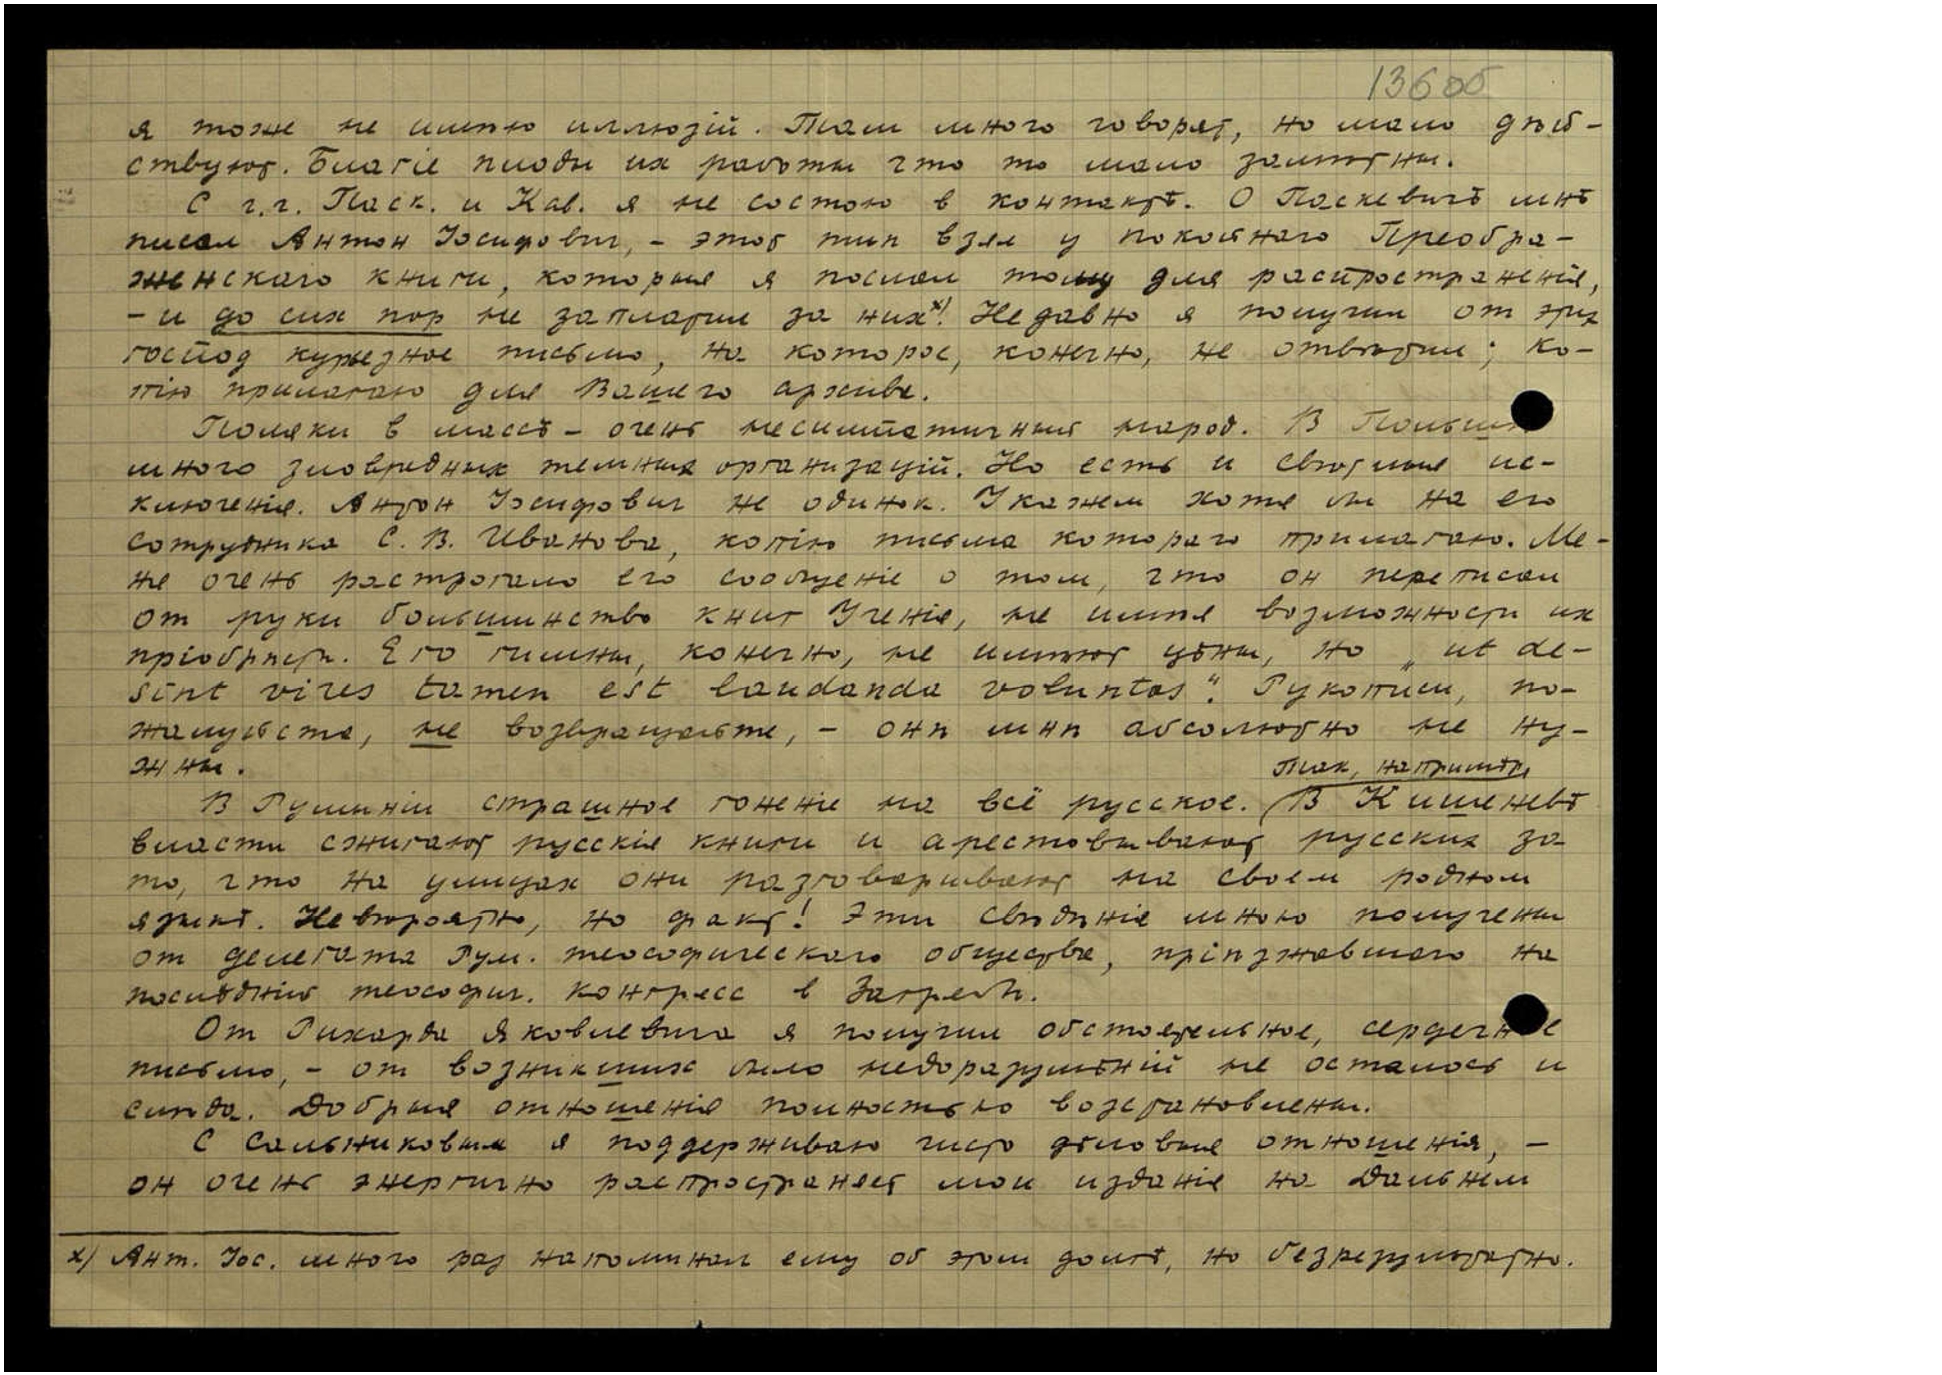 136об
я тоже не имѣю иллюзій. Там много говорят, но мало дѣй-
ствуют. Благіе плоды их работы что то мало замѣтны.
С г.г. Паск. и Кав. я не состою в контактѣ. О Паскевичѣ мнѣ
писал Антон Іосифович, – этот тип взял у покойнаго Преобра-
женскаго книги, которыя я послал тому для распространенія,
– и до сих пор не заплатил за них х). Недавно я получил от этих
господ курьезное письмо, на которое, конечно, не отвѣтил; ко-
пію прилагаю для Вашего архива.
Поляки в массѣ – очень несимпатичный народ. В Польшѣ
много зловредных темных организацій. Но есть и свѣтлыя ис-
ключенія. Антон Іосифович не одинок. Укажем хотя бы на его
сотрудника С. В. Иванова, копію письма котораго прилагаю. Ме-
не очень растрогало его сообщеніе о том, что он переписал
от руки большинство книг Ученія, не имѣя возможности их
пріобрѣсти. Его гимны, конечно, не имѣют цѣны, но „ut de-
sint vires tamen est laudanda voluntas“. Рукописи, по-
жалуйста, не возвращайте, – онѣ мнѣ абсолютно не ну-
жны.
Так, напримѣр,
В Румыніи страшное гоненіе на всё русское. (В Кишеневѣ
власти сжигают русскія книги и арестовывают русских за
то, что на улицах они разговаривают на своем родном
языкѣ. Невѣроятно, но факт! Эти свѣдѣнія мною получены
от делегата Рум. теософическаго общества, пріѣзжавшаго на
послѣдній теософич. конгресс в Загребѣ.
От Рихарда Яковлевича я получил обстоятельное, сердечное
письмо, – от возникших было недоразумѣній не осталось и
слѣда. Добрыя отношенія полностью возстановлены.
С Сальниковым я поддерживаю чисто дѣловыя отношенія, –
он очень энергично распространяет мои изданія на Дальнем
х) Ант. Іос. много раз напоминал ему об этом долгѣ, но безрезультатно.